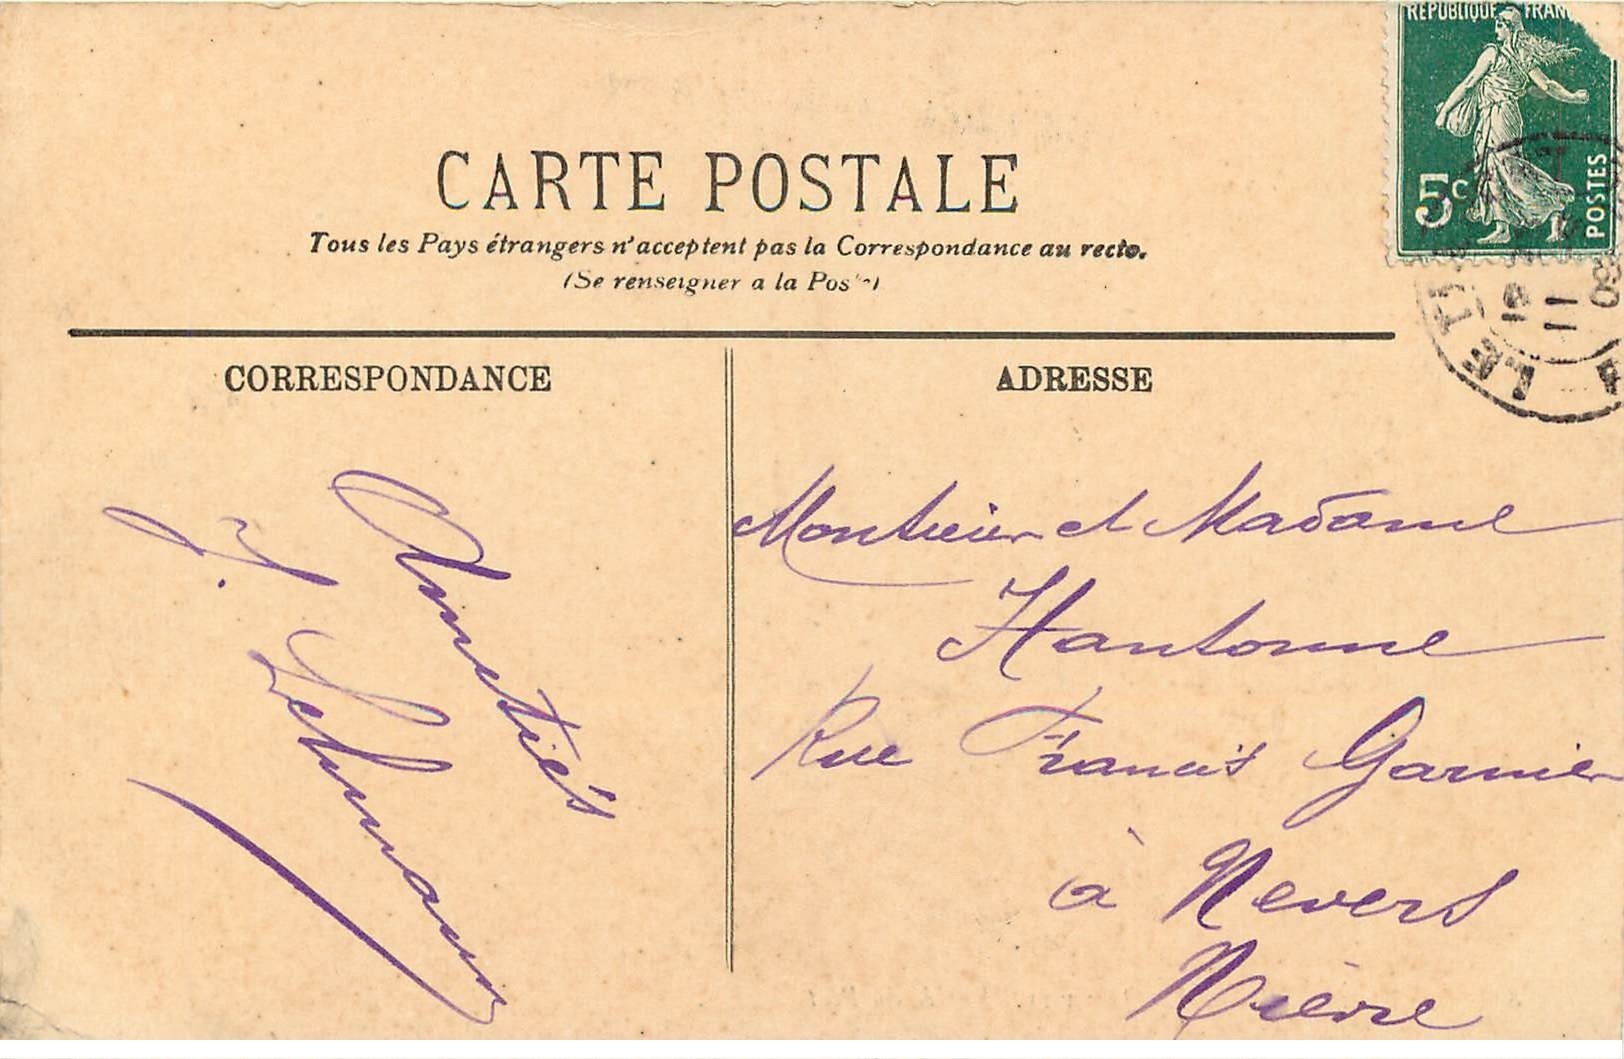 RÉPUBLIQUE FRAN
5c
POSTES
CARTE POSTALE
Tous les Pays étrangers n'acceptent pas la Correspondance au recto.
(Se renseigner a la Pos
LE T
CORRESPONDANCE
ADRESSE
Amitiés
Lehmann
Monsieur et Madame
Hantonne
Rue Francis Garnier
à Nevers
Nièvre